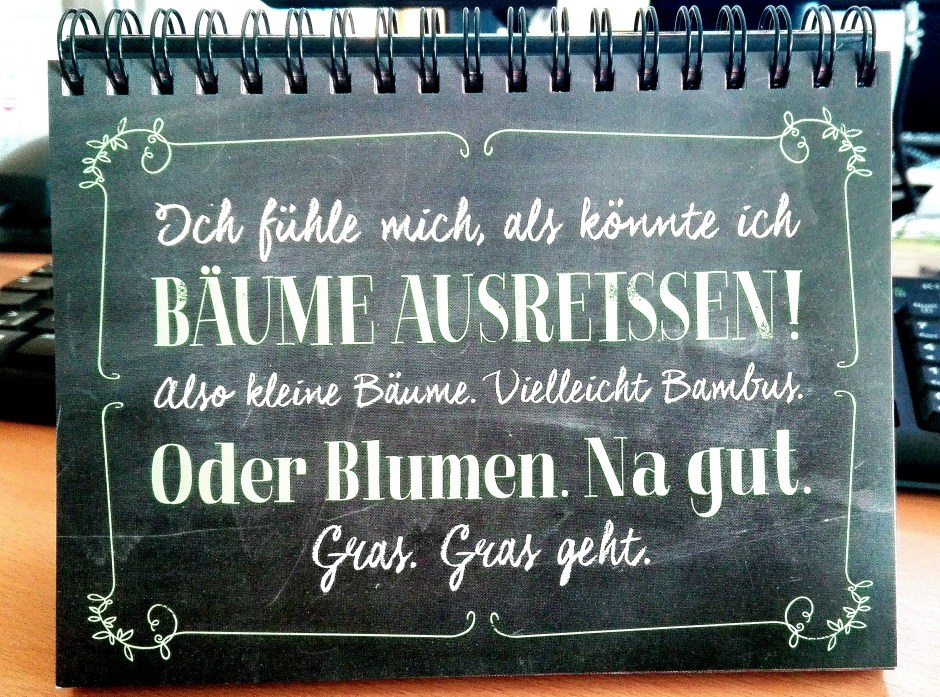 Ich fühle mich, als könnte ich
BÄUME AUSREISSEN!
Also kleine Bäume. Vielleicht Bambus.
Oder Blumen. Na gut.
Gras. Gras geht.